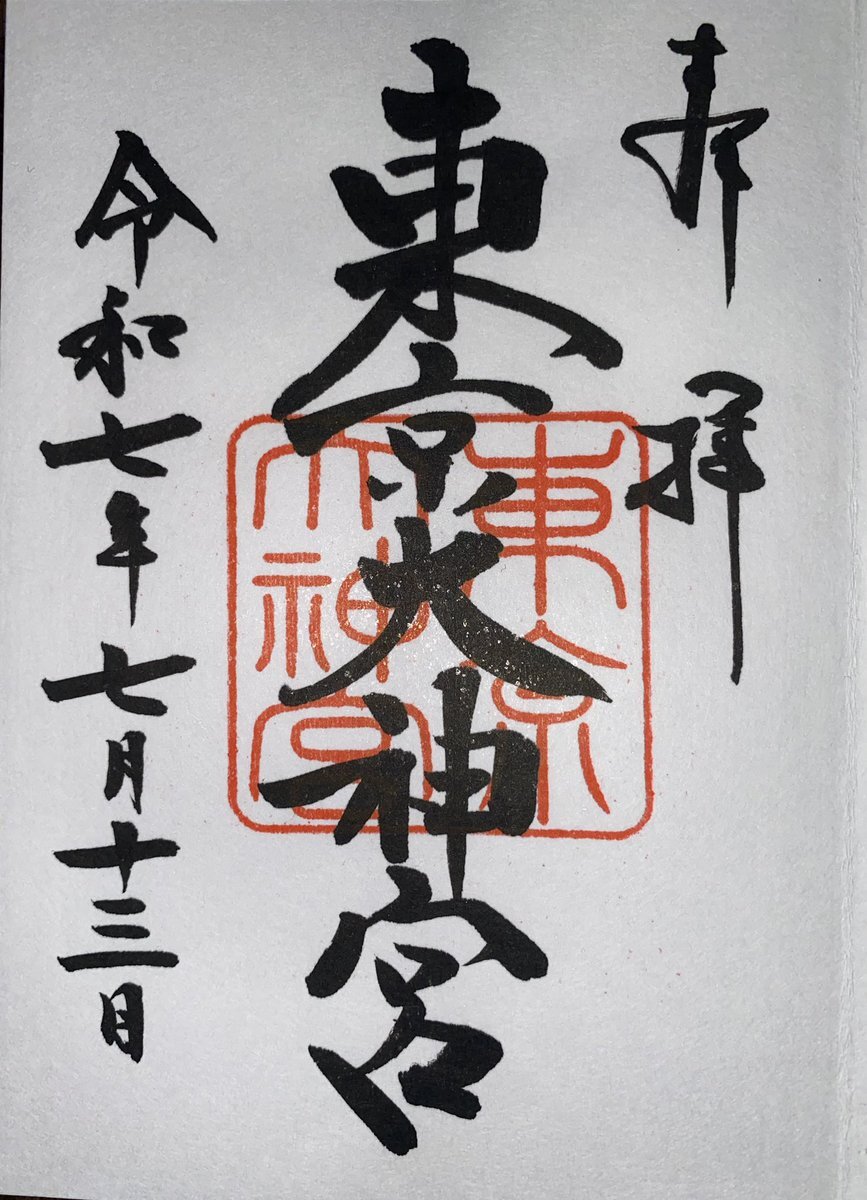 奉拝
東京大神宮
東京
大神宮
令和七年七月十三日